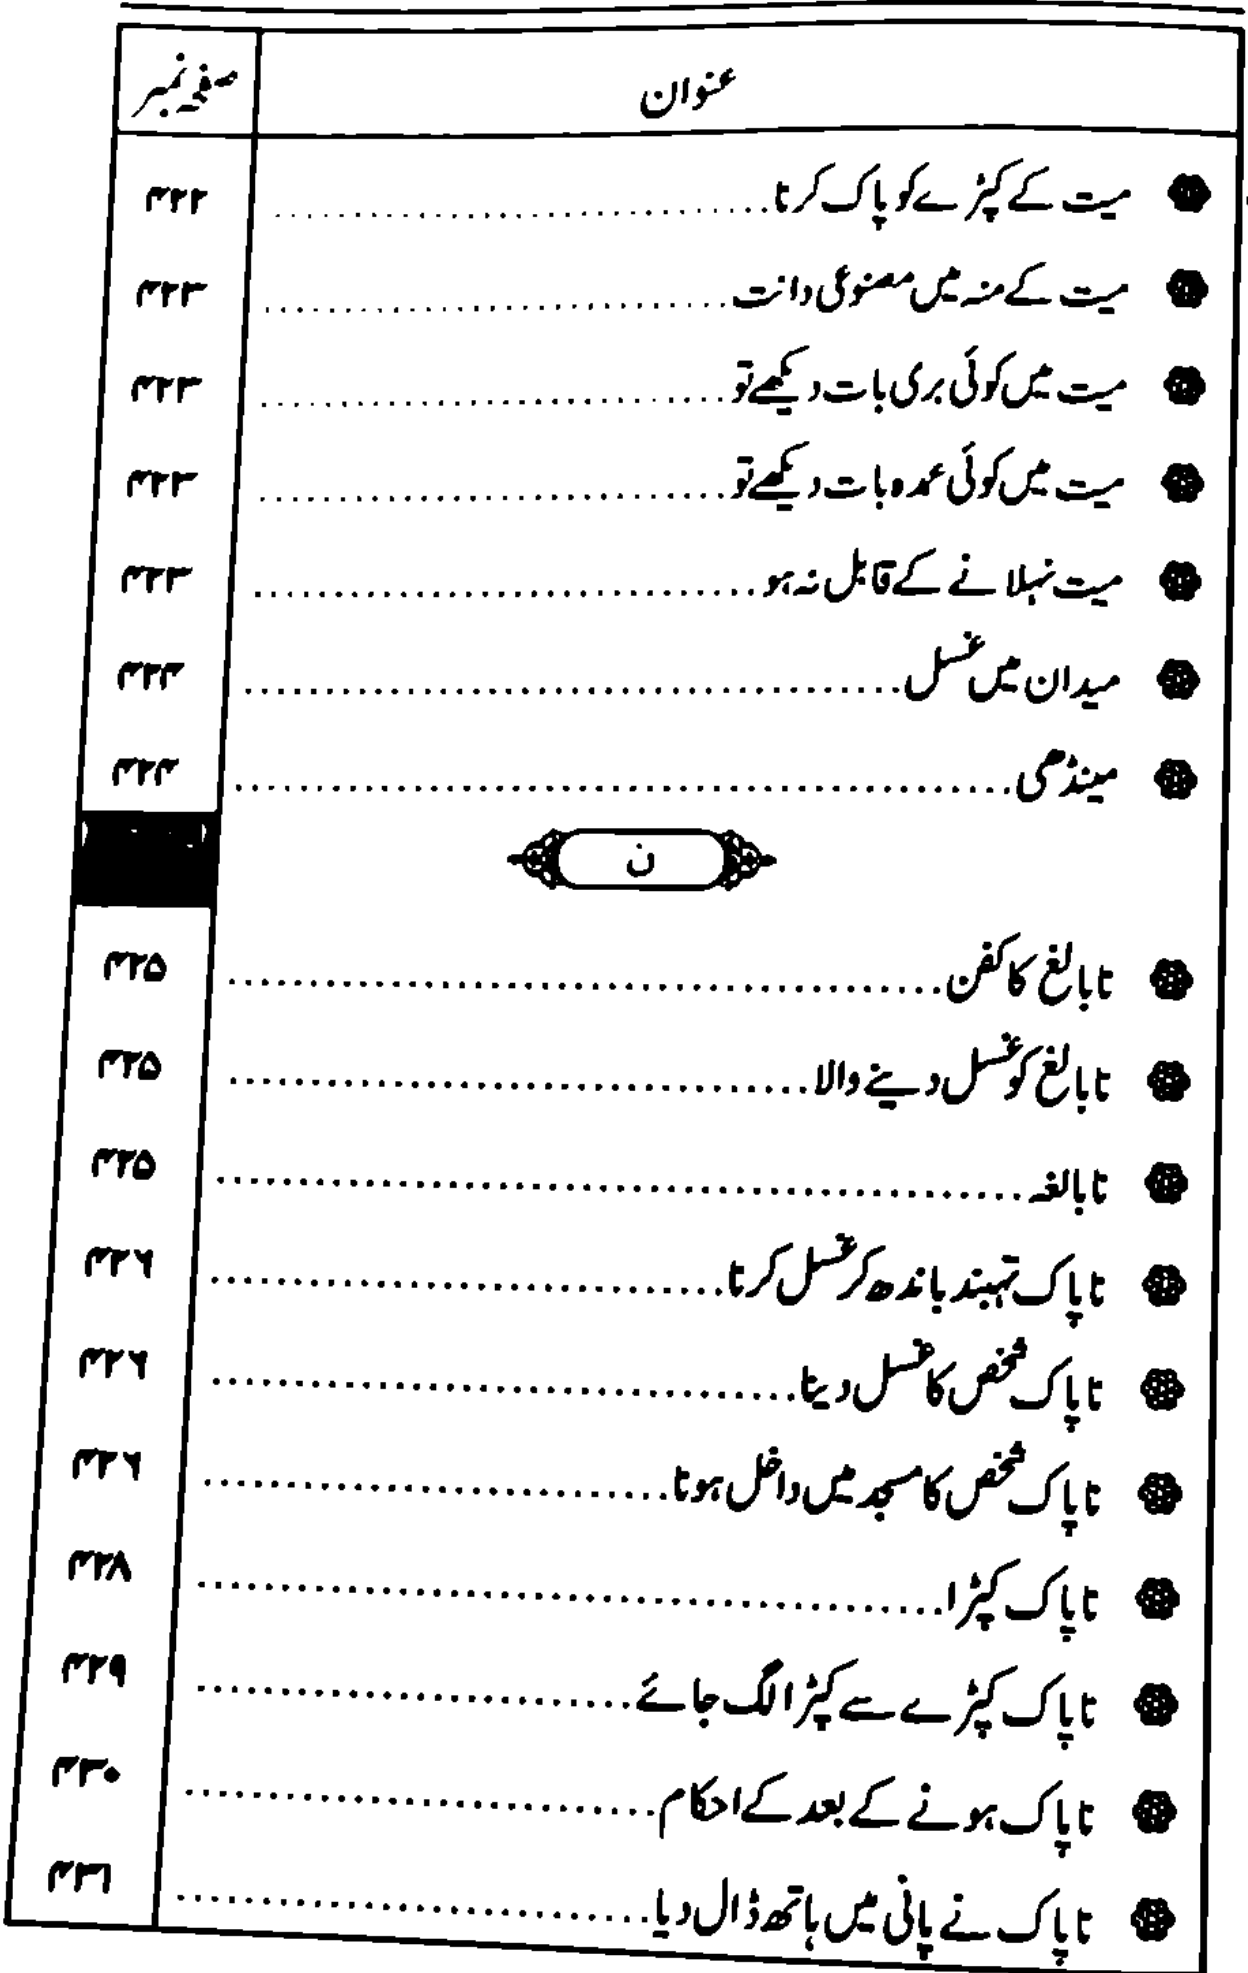 عنوان صفحہ نمبر
میت کے کپڑے کو پاک کرنا ۴۲۲
میت کے منہ میں مصنوعی دانت ۴۲۳
میت میں کوئی بری بات دیکھے تو ۴۲۳
میت میں کوئی عمدہ بات دیکھے تو ۴۲۳
میت نہلانے کے قابل نہ ہو ۴۲۳
میدان میں غسل ۴۲۴
مینڈھی ۴۲۴
ن
نابالغ کا کفن ۴۲۵
نابالغ کو غسل دینے والا ۴۲۵
نابالغہ ۴۲۵
ناپاک تہبند باندھ کر غسل کرنا ۴۲۶
ناپاک شخص کا غسل دینا ۴۲۶
ناپاک شخص کا مسجد میں داخل ہونا ۴۲۶
ناپاک کپڑا ۴۲۸
ناپاک کپڑے سے کپڑا لگ جائے ۴۲۹
ناپاک ہونے کے بعد کے احکام ۴۳۰
ناپاک نے پانی میں ہاتھ ڈال دیا ۴۳۱